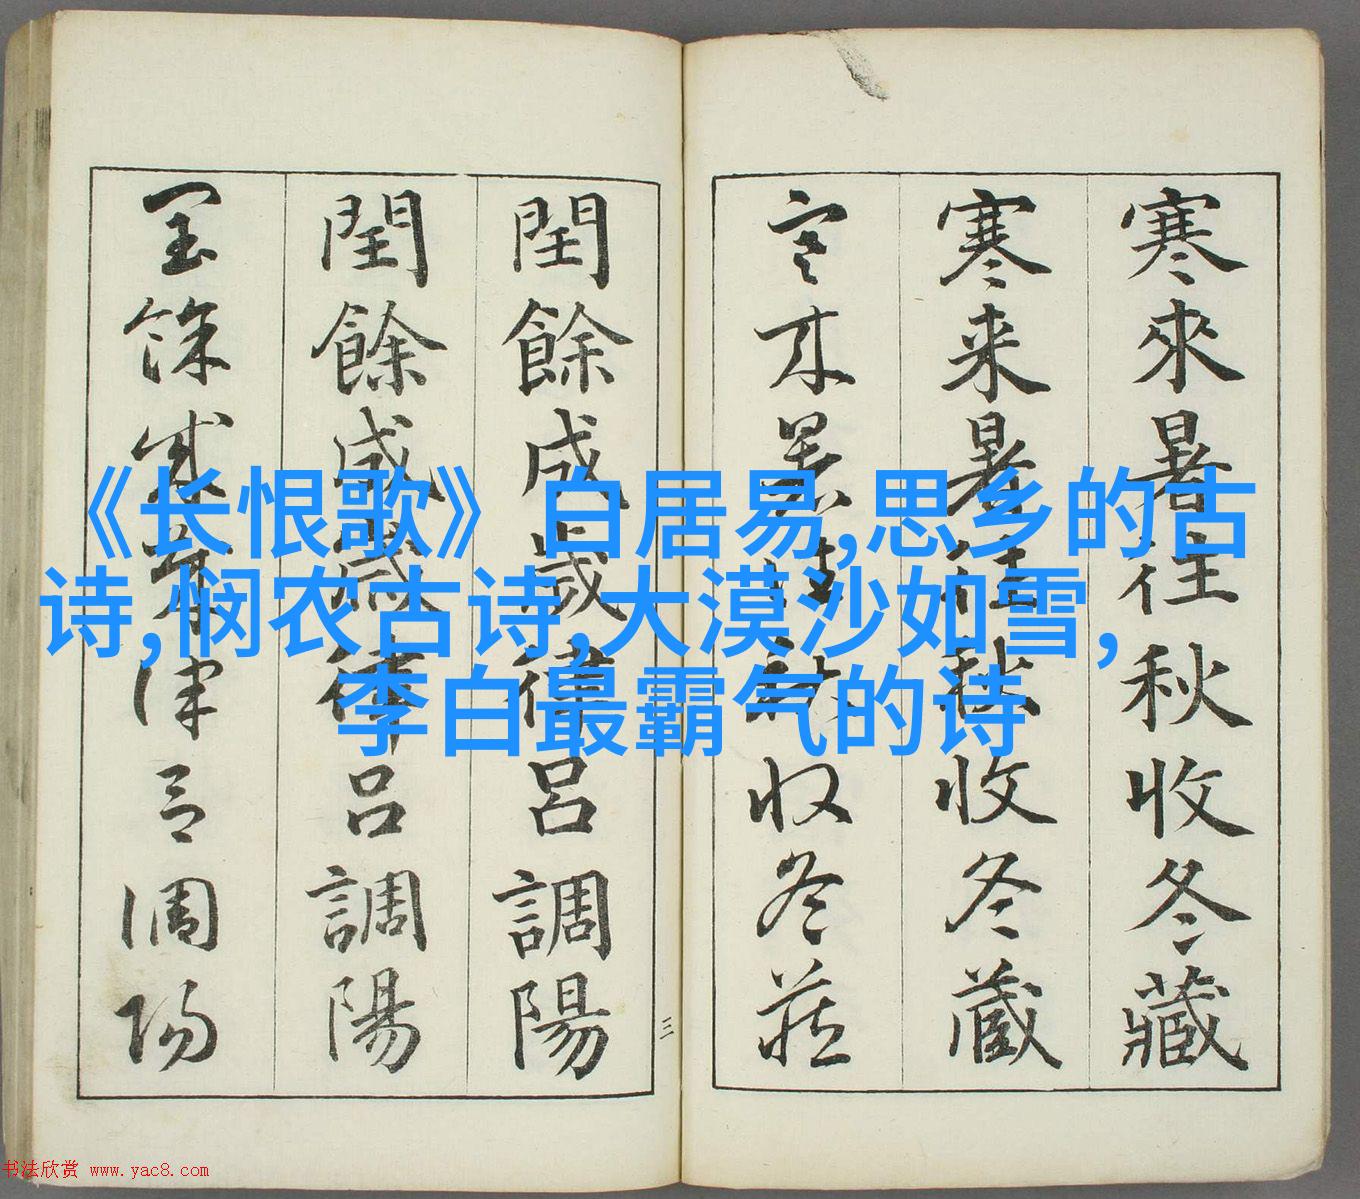 寒來暑往秋收冬藏
寒来暑往秋收冬蔵
寒来暑往秋収冬蔵
閏餘成歲律呂調陽
閏餘成歲律呂調陽
閏餘成歲律呂調陽
三
《长恨歌》白居易,思乡的古
诗,悯农古诗,大漠沙如雪,
李白最霸气的诗
书法欣赏 www.yac8.com